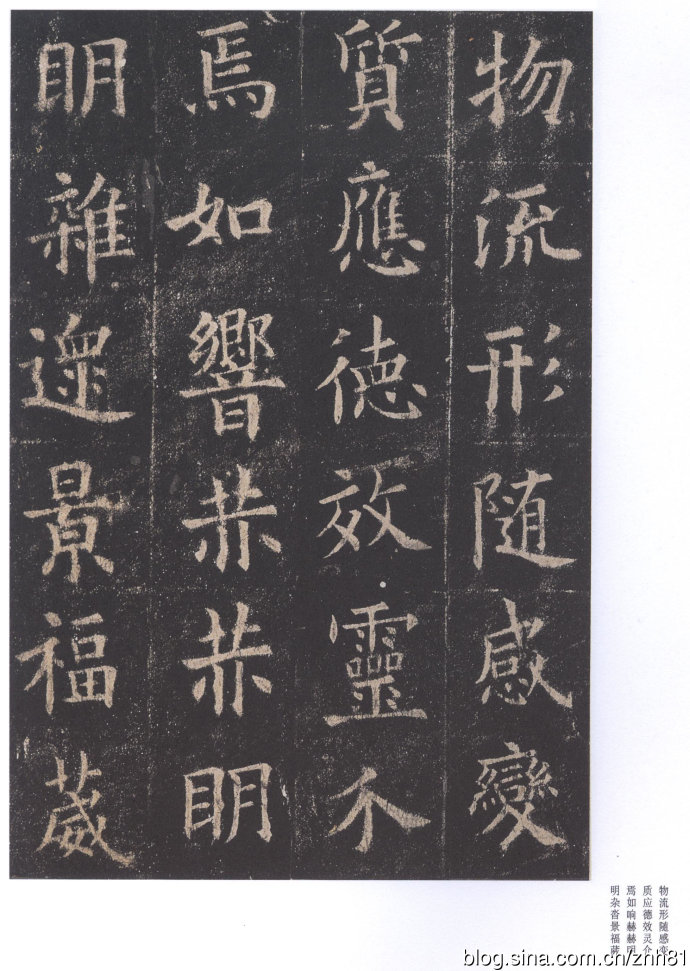 物流形随感變
質應徳效靈介
焉如響赫赫眀
眀雜遝景福葳
物流形随感变
质应德效灵介
焉如响赫赫明
明杂沓景福葳
blog.sina.com.cn/znh81